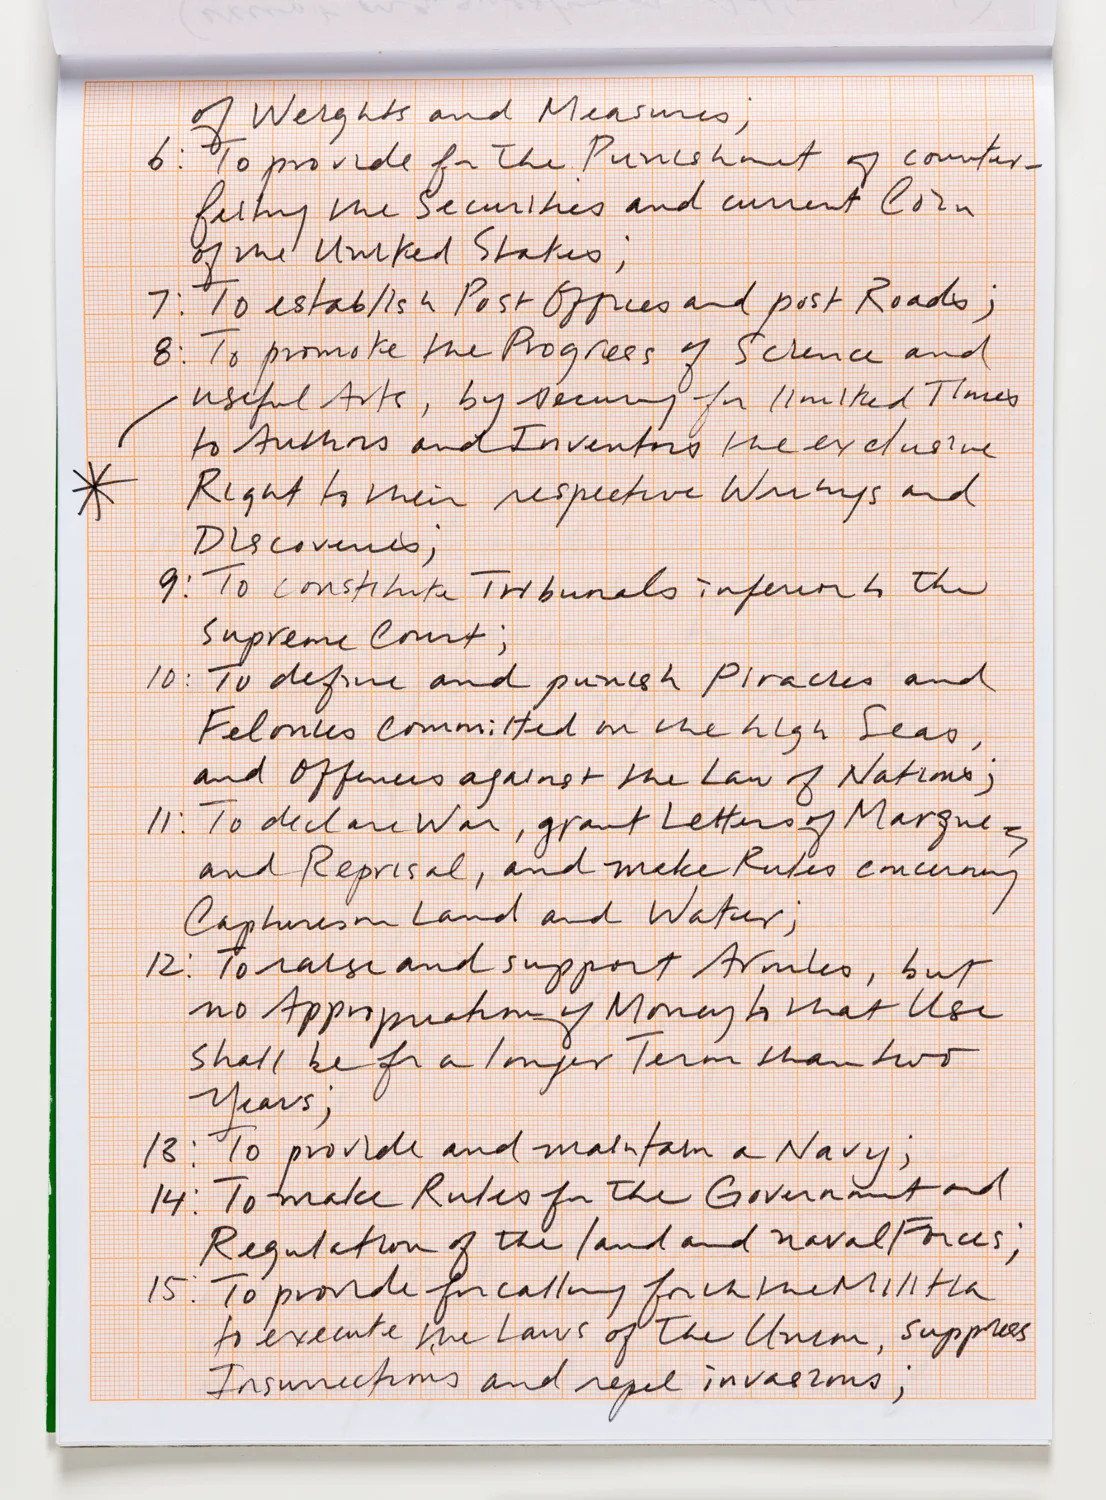 of Weights and Measures;
6: To provide for the Punishment of counter-
feiting the Securities and current Coin
of the United States;
7: To establish Post Offices and post Roads;
8: To promote the Progress of Science and
useful Arts, by securing for limited Times
to Authors and Inventors the exclusive
* Right to their respective Writings and
Discoveries;
9: To constitute Tribunals inferior to the
Supreme Court;
10: To define and punish Piracies and
Felonies committed on the high Seas,
and Offences against the Law of Nations;
11: To declare War, grant Letters of Marque,
and Reprisal, and make Rules concerning
Captures on Land and Water;
12: To raise and support Armies, but
no Appropriation of Money to that Use
shall be for a longer Term than two
Years;
13: To provide and maintain a Navy;
14: To make Rules for the Government and
Regulation of the land and naval Forces;
15: To provide for calling forth the Militia
to execute the Laws of the Union, suppress
Insurrections and repel invasions;